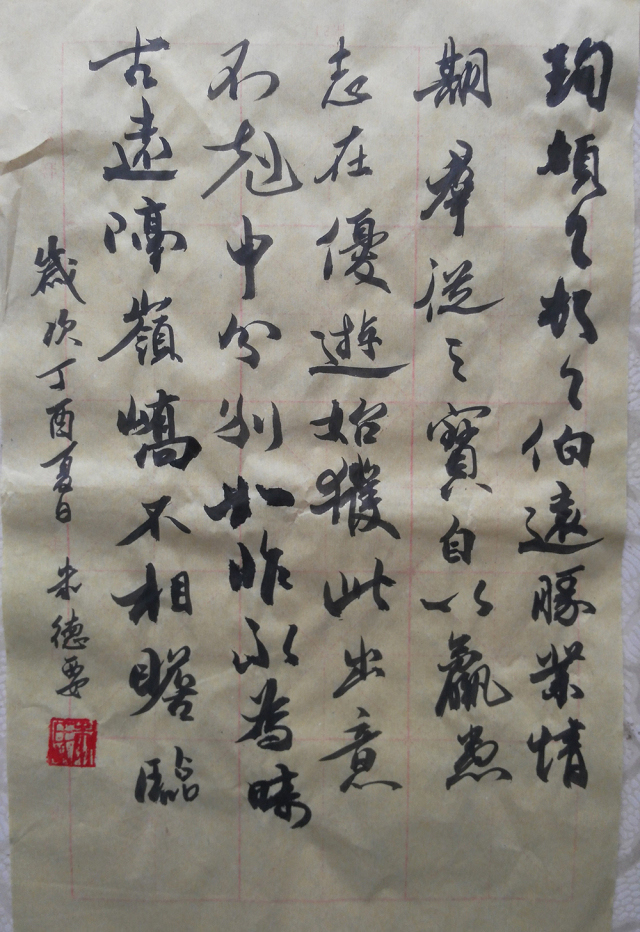 珣頓首頓首伯遠勝業情
期羣從之寶自以羸患
志在優遊始獲此出意
不剋申分別如昨永為疇
古遠隔嶺嶠不相瞻臨
歲次丁酉夏日 朱德要